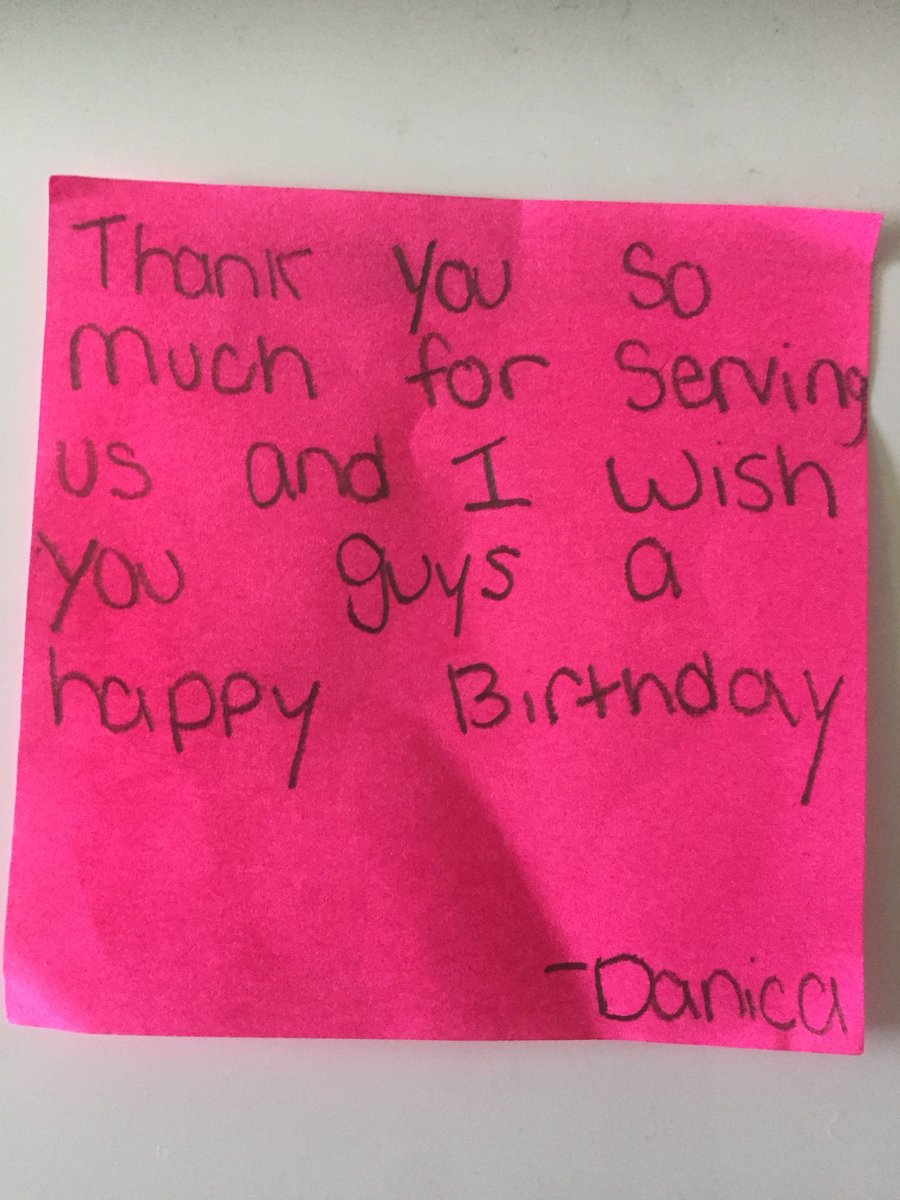 Thank you So
much for Serving
us and I wish
you guys a
happy Birthday
-Danica